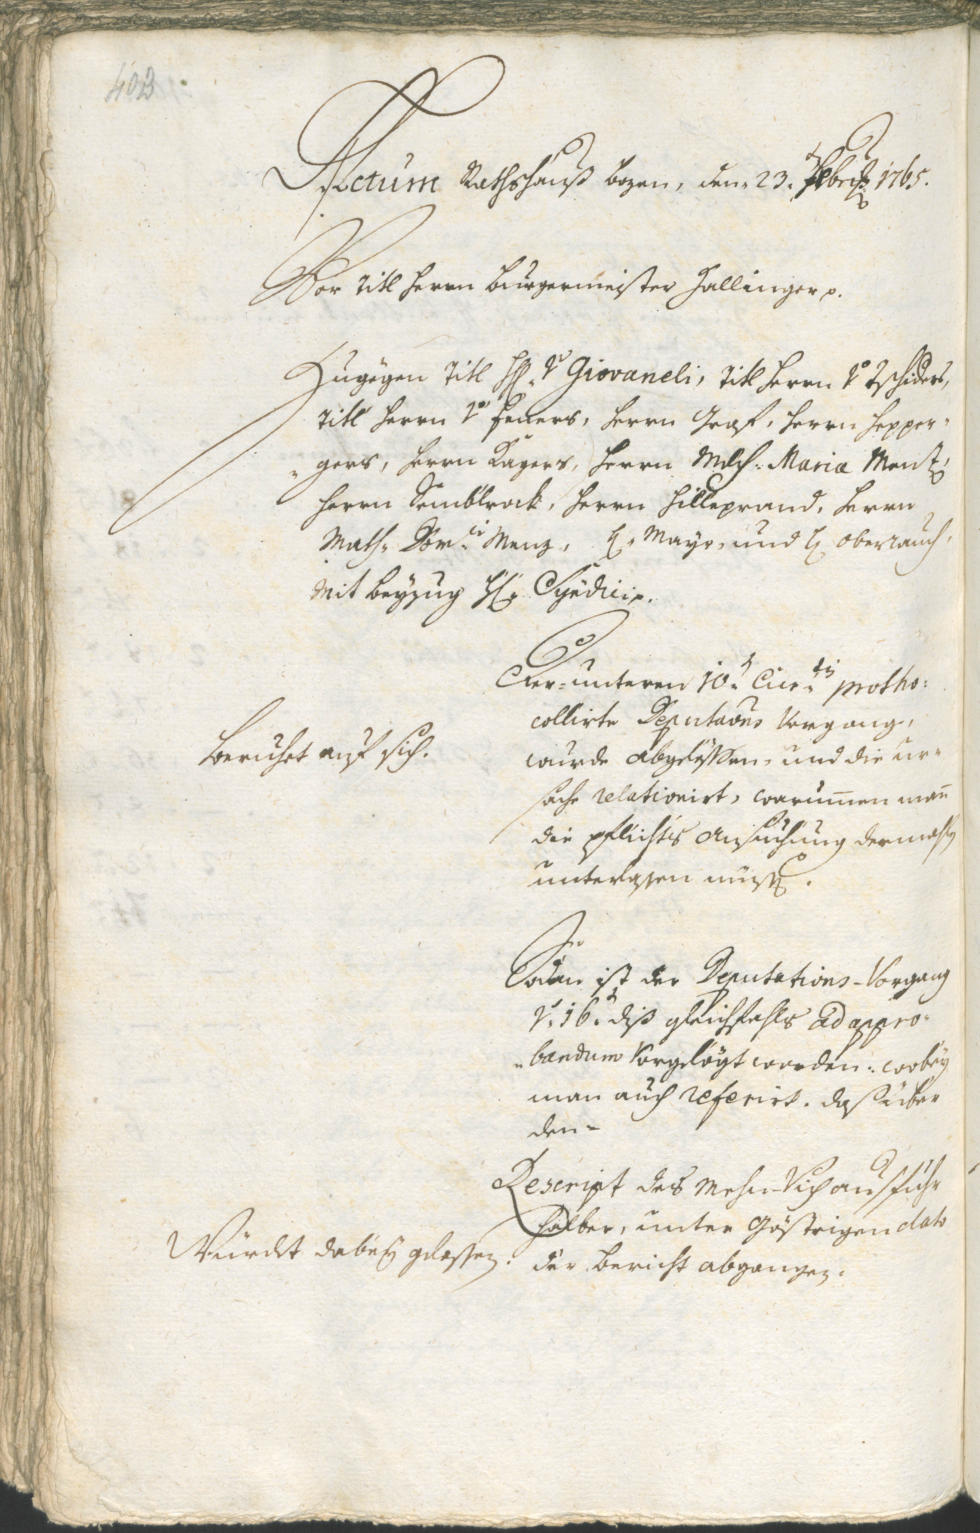 403
Actum Rathshauß bozen, den 23. 7bris 1765.
Vor Titl herrn burgermeister Hallinger p.
Zugegen Titl HH. v Giovaneli, Titl herrn v Tschiders,
Titl herrn v Feners, herrn Graf, herrn hepper-
gers, herrn Kagers, herrn Mlch. Maria Mentz,
herrn Semblrock, herrn hilleprand, herrn
Math. Domci Menz, H. Mayr, und H oberrauch,
mit beyzug H. Syndici p.
Der unteren 10t Curtis protho-
collirte Deputaons Vorgang,
wurde abgelessen, und die ur-
sache relationirt, warumen man
die pflichts Ansuchung dermahl
unterlassen müsst.
beruhet auf sich.
Sodan ist der Deputations-Vorgang
v. 16t diß gleichfahls ad appro-
bandum Vorgelögt worden, wobey
man auch referirt, daß über
den-
Rescript des Mehr-Vich ausfuhr
halber, unter gästrigen dato
der bericht abgangen.
Würdt dabey gelassen.